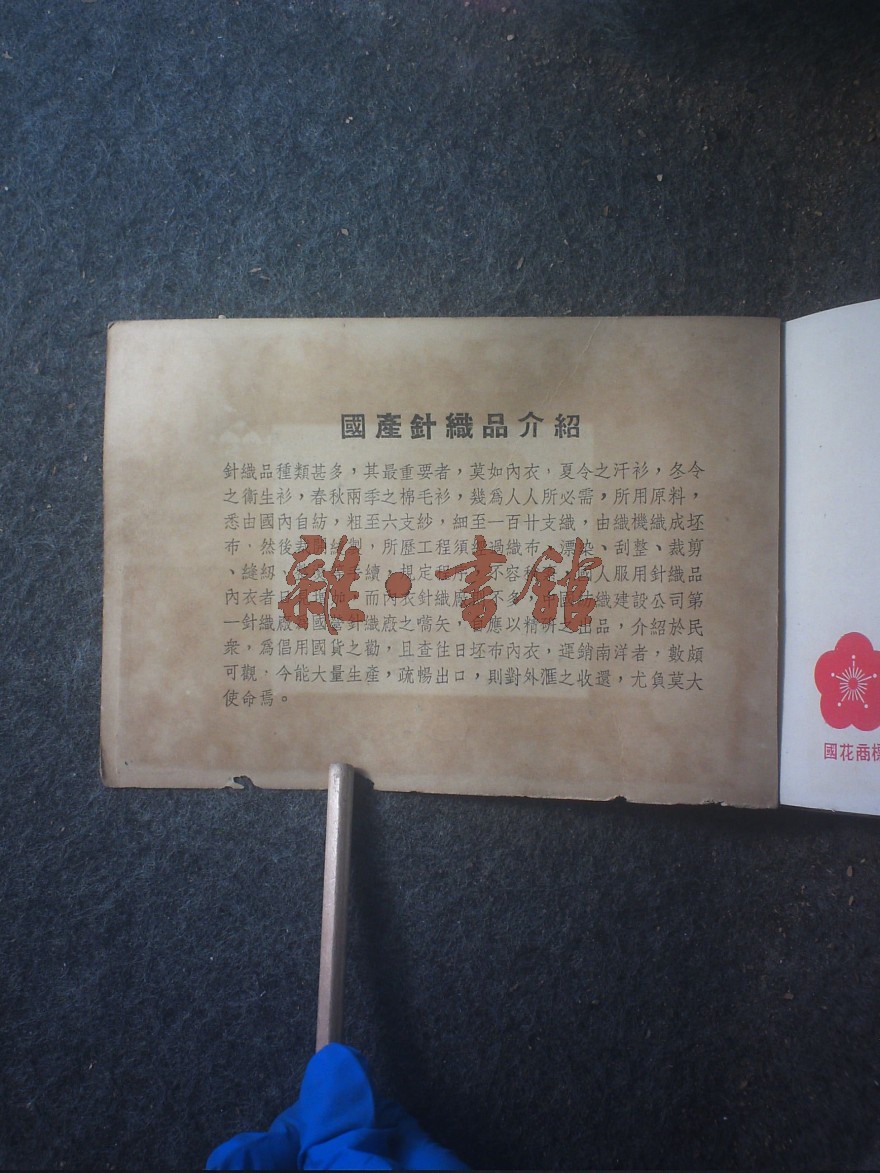 國產針織品介紹
針織品種類甚多，其最重要者，莫如內衣，夏令之汗衫，冬令
之衞生衫，春秋兩季之棉毛衫，幾爲人人所必需，所用原料，
悉由國內自紡，粗至六支紗，細至一百廿支織，由織機織成坯
布，然後裁製，所歷工程須經過織布、漂染、刮整、裁剪
、縫紉、手續，規定程序，不容人服用針織品
內衣者日而內衣針織廠不多，中國紡織建設公司第
一針織廠爲國產針織廠之嚆矢，自應以精研之出品，介紹於民
衆，爲倡用國貨之勸，且查往日坯布內衣，運銷南洋者，數頗
可觀，今能大量生產，疏暢出口，則對外滙之收還，尤負莫大
使命焉。
雜·書舘
國花商標